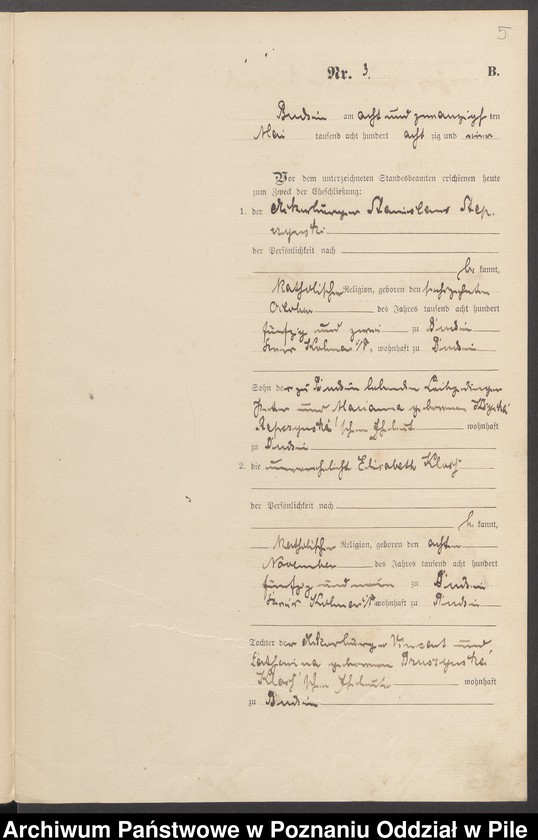 5
Nr. 3. B.
Budsin am acht und zwanzigsten
Mai tausend acht hundert acht zig und
Vor dem unterzeichneten Standesbeamten erschienen heute
zum Zweck der Eheschließung:
1. der Ackerbürger Stanislaus
der Persönlichkeit nach
be kannt,
katholischer Religion, geboren den
October des Jahres tausend acht hundert
fünfzig und zwei zu Budsin
Kreis Kolmar i/P., wohnhaft zu Budsin
Sohn der zu Budsin lebenden Leibgedinger
Peter und Marianna geborenen
'schen Eheleute wohnhaft
zu Budsin
2. die unverehelichte Elisabeth Klosz
der Persönlichkeit nach
be kannt,
katholischer Religion, geboren den achten
November des Jahres tausend acht hundert
fünfzig und neun zu Budsin
Kreis Kolmar i/P wohnhaft zu Budsin
Tochter der Ackerbürger Vincent und
Catharina geborenen
Klosz'schen Eheleute wohnhaft
zu Budsin
Archiwum Państwowe w Poznaniu Oddział w Pile